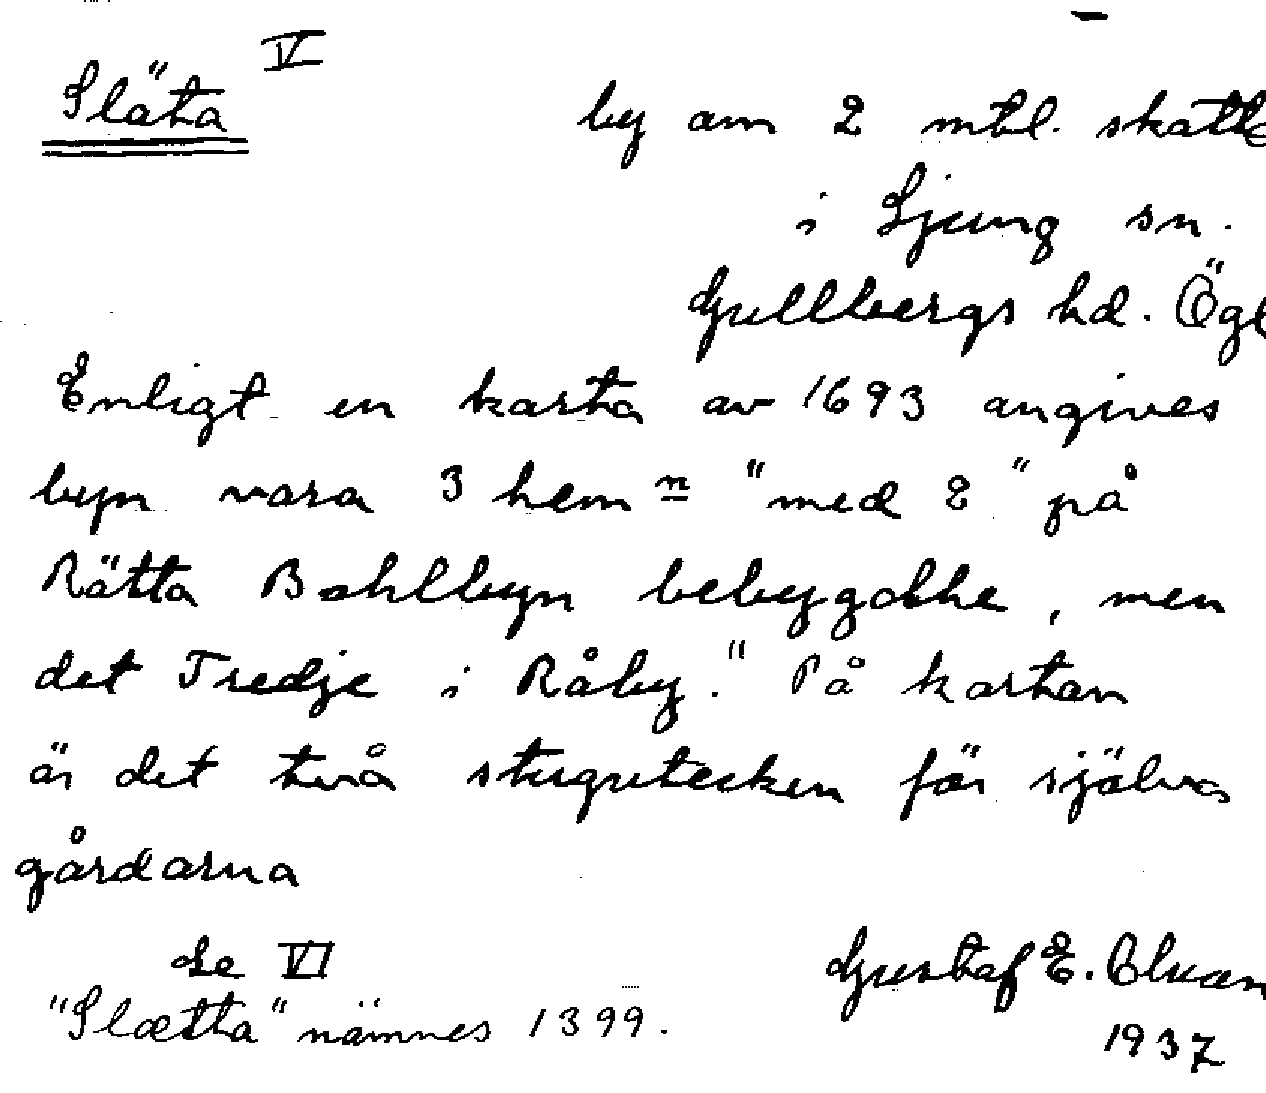 Släta V by om 2 mtl. skatte
i Ljung sn.
Gullbergs hd. Ögl
Enligt en karta av 1693 angives
byn vara 3 hem n "med 2" på
Rätta Bohlbyn bebygdhe, men
det Tredje i Råby." På kartan
är det två stugutecken för själva
gårdarna
Se VI Gustaf E.
"Slætta" nämnes 1399. 1937